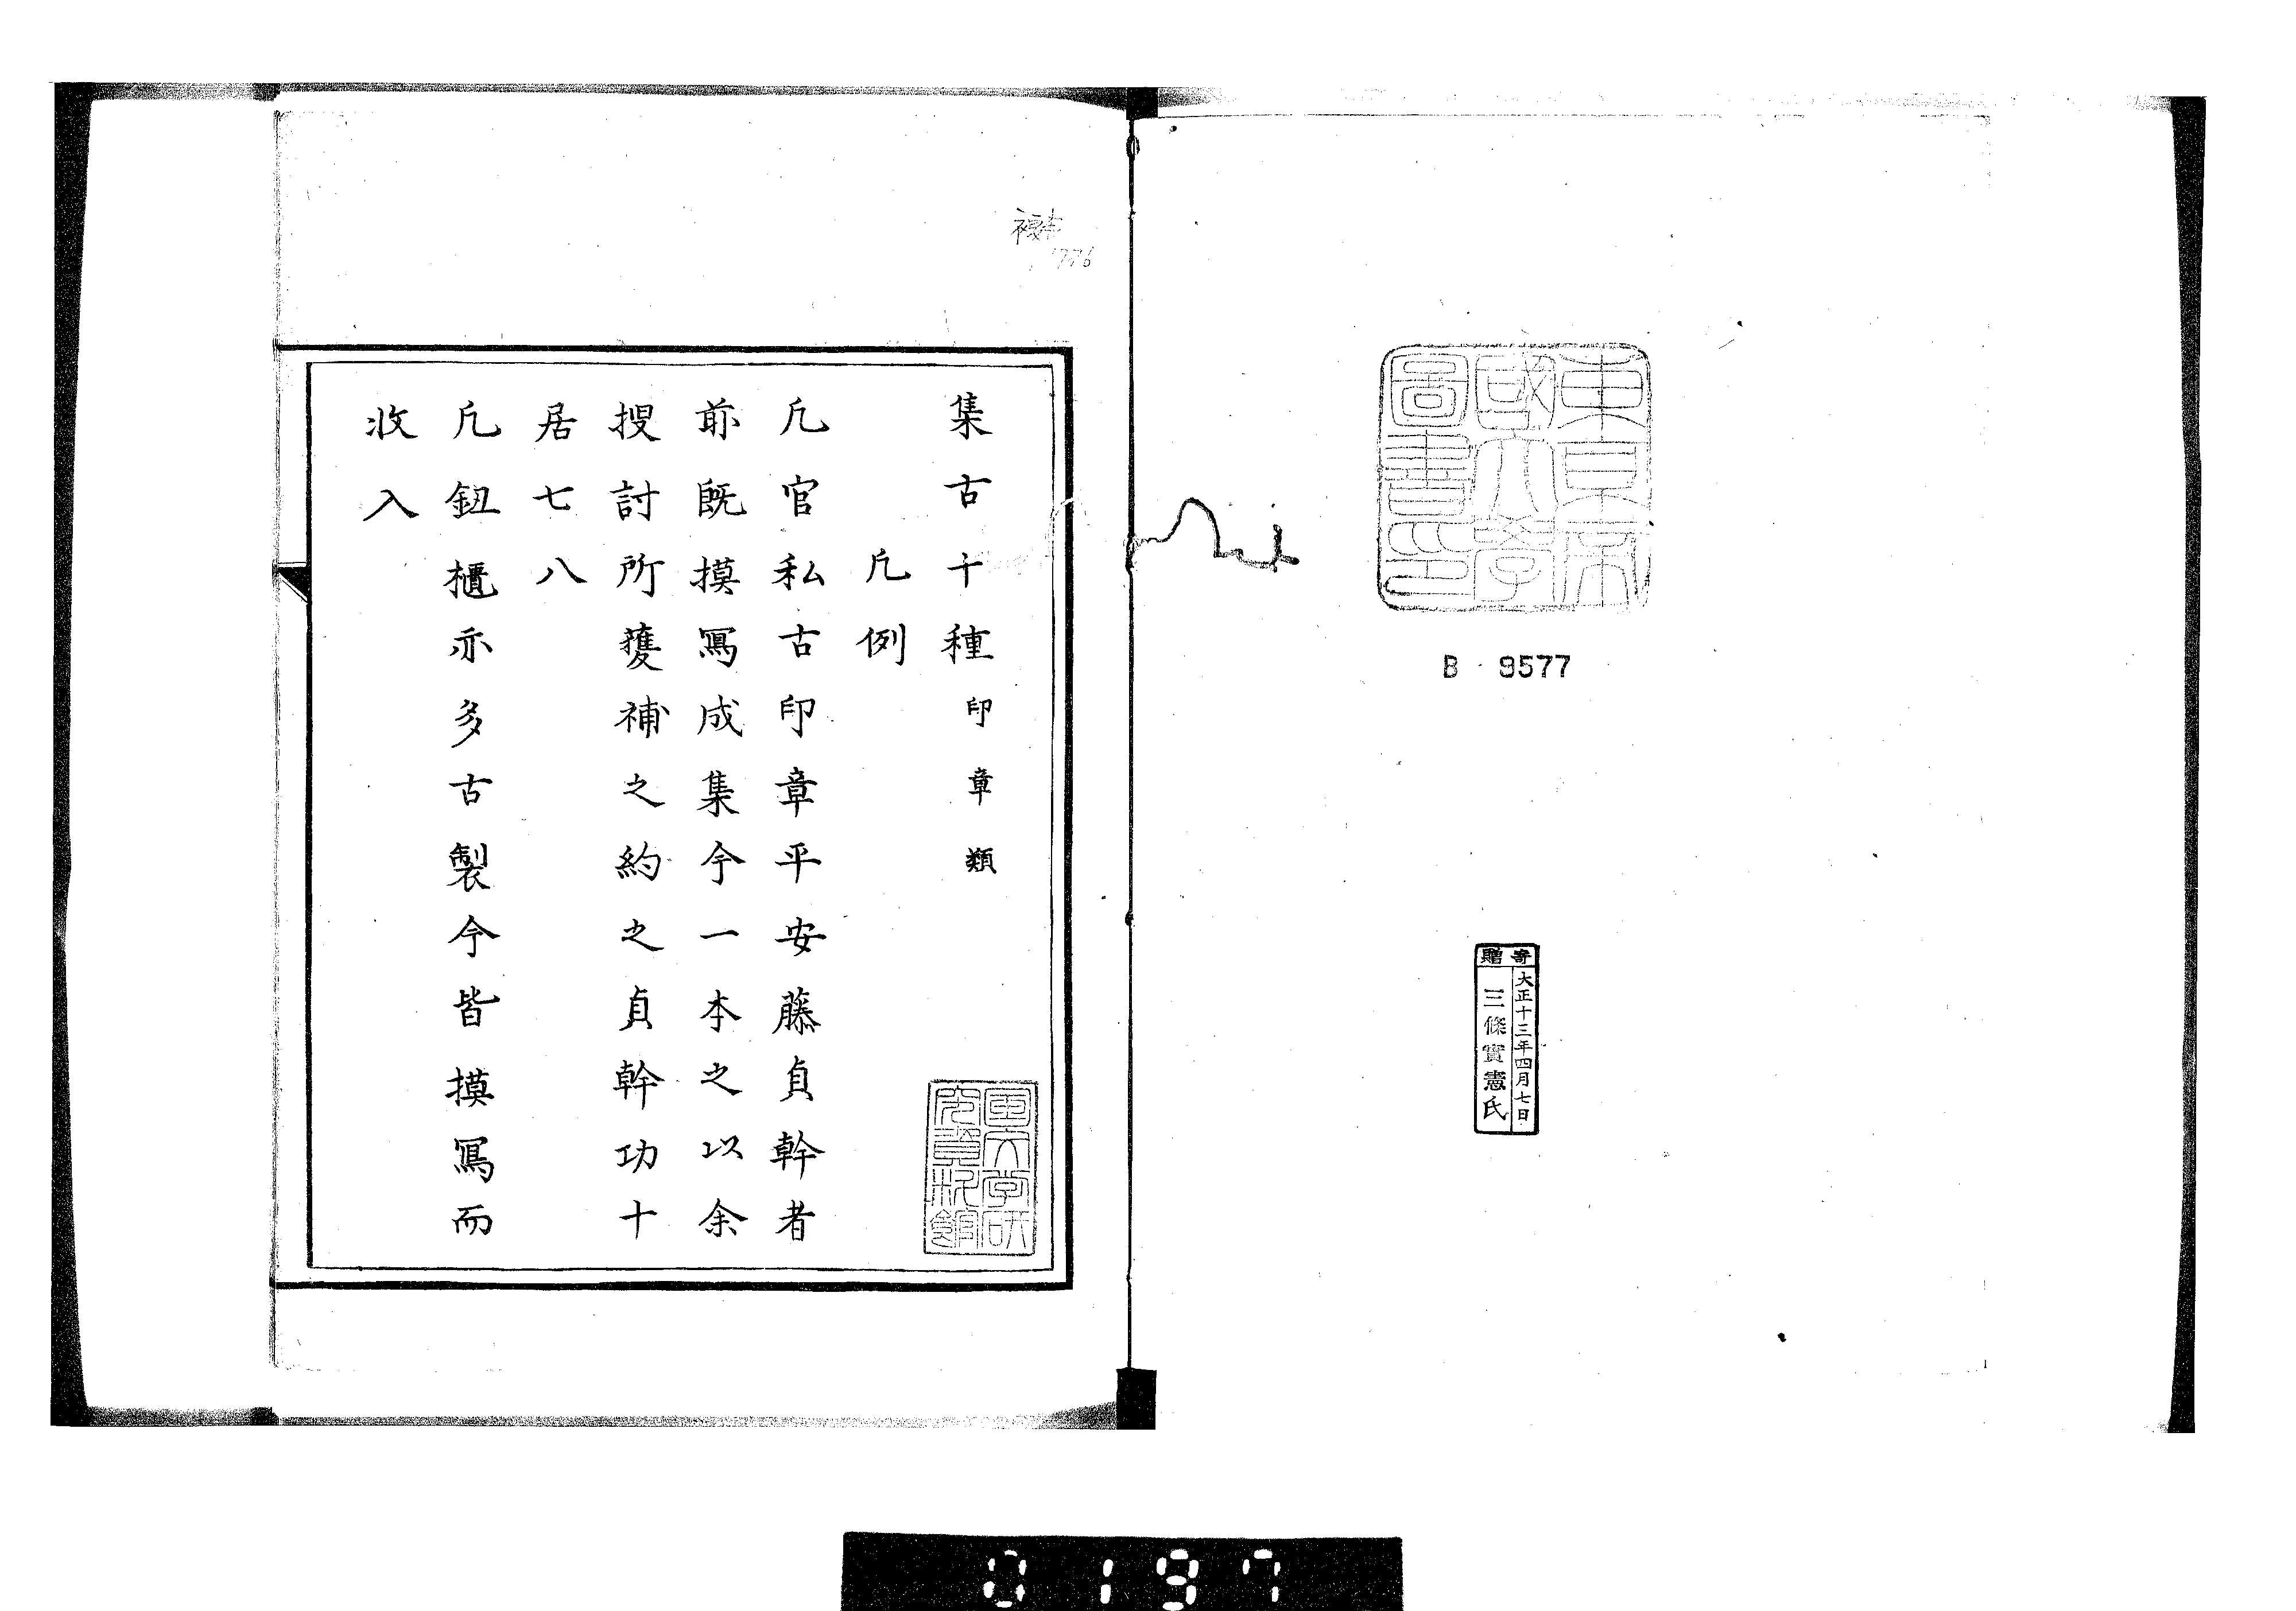 東京帝
國大學
圖書印
B 9577
寄贈
大正十三年四月七日
三條實憲氏
複本
776
集古十種印章類
凡例
凡官私古印章平安藤貞幹者
前既摸寫成集今一本之以余
搜討所獲補之約之貞幹功十
居七八
凡鈕櫃亦多古製今皆摸寫而
收入
国文学研
究資料館
0197